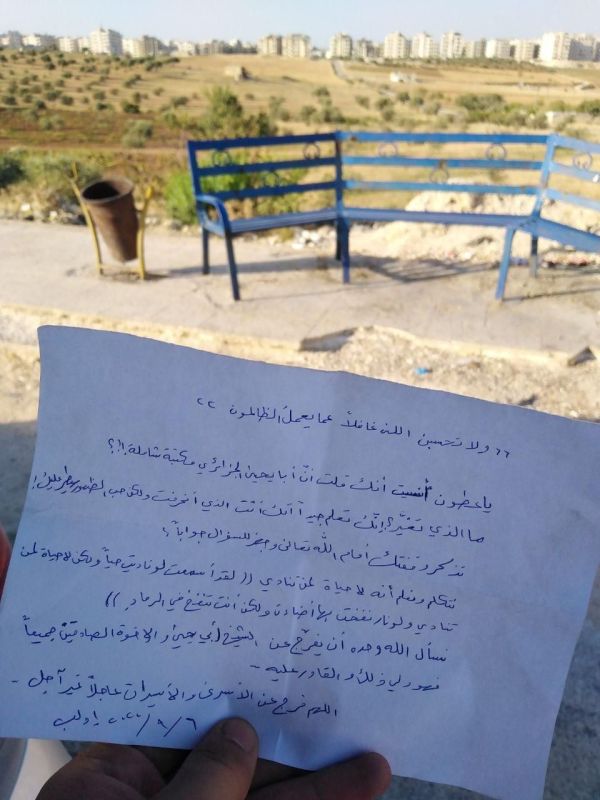 "ولا تحسبن الله غافلاً عما يعمل الظالمون"
ياعطون أنسيت أنك قلت انّ أبا يحيى الجزائري مكتبة شاملة!!؟
ما الذي تغيّر؟! إنّك تعلم جيداً أنك أنت الذي انحرفت ولكن حب الظهور يسيطر عليك!
تذكر وقفتك أمام الله تعالى وجهز للسؤال جواباً
نتكلم ونعلم أنه لا حياة لمن تنادي (( لقد أسمعت لو ناديت حياً ولكن لا حياة لمن
تنادي ولو نار نفخت بها أضاءت ولكن أنت تنفخ في الرماد ))
نسأل الله وحده أن يفرّج عن الشيخ أبي يحيى و الإخوة الصادقين جميعاً
فهو ولي ذلك والقادر عليه -
اللهم فرج عن الأسرى والأسيرات عاجلاً غير آجل -
٢٠٢٢/٩/٦ إدلب